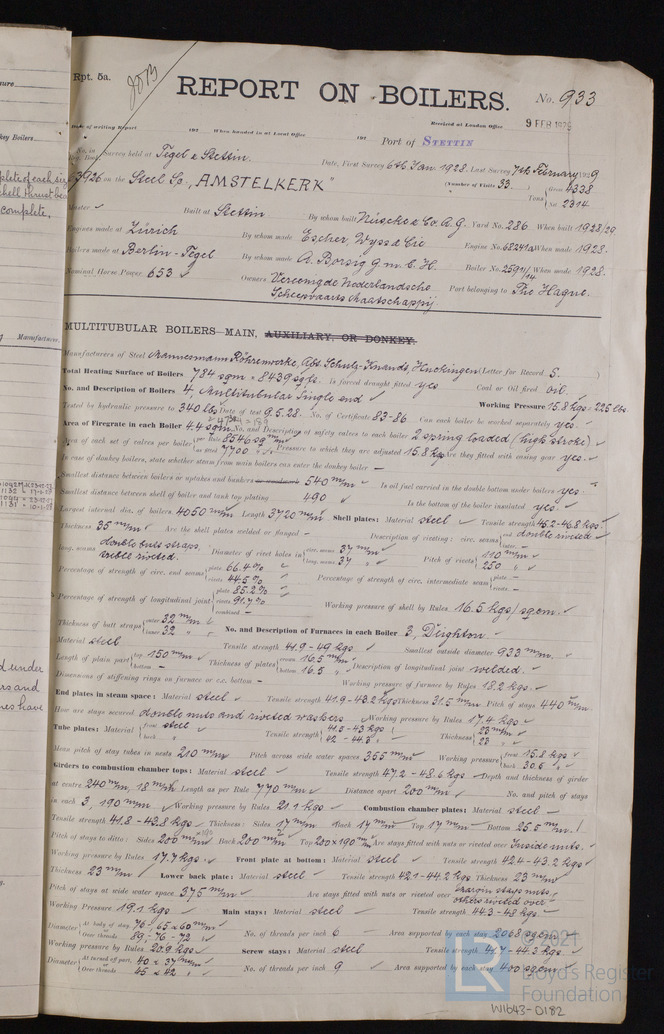 Rpt. 5a.
REPORT ON BOILERS.
No. 933
Received at London Office
9 FEB 1929
Date of writing Report 192 When handed in at Local Office 192 Port of STETTIN
No. in Reg. Book. Survey held at Tegel & Stettin. Date, First Survey 6th Jan 1928. Last Survey 7th February 1929
on the Steel Sc. "AMSTELKERK" (Number of Visits 33.) Gross 4338
Tons Net 2314
Master Built at Stettin By whom built Nüscke & Co. A.G. Yard No. 286. When built 1928/29
Engines made at Zürich By whom made Escher, Wyss & Cie Engine No. When made 1928.
Boilers made at Berlin-Tegel By whom made A. Borsig G.m.b.H. Boiler No. When made 1928.
Nominal Horse Power 653 Owners Vereenigde Nederlandsche Scheepvaarts Maatschappij Port belonging to The Hague.
MULTITUBULAR BOILERS MAIN, AUXILIARY, OR DONKEY.
Manufacturers of Steel Mannesmann Röhrenwerke, Abt. Schulz-Knaudt, Huckingen (Letter for Record S.)
Total Heating Surface of Boilers 784 sqm = 8439 sqft. Is forced draught fitted yes Coal or Oil fired oil.
No. and Description of Boilers 4, Multitubular Single end Working Pressure 15.8 kgs = 225 lbs.
Tested by hydraulic pressure to 340 lbs Date of test 9.5.28. No. of Certificate 83-86. Can each boiler be worked separately yes.
Area of Firegrate in each Boiler 4.4 sqm No. and Description of safety valves to each boiler 2 spring loaded (high stroke)
Area of each set of valves per boiler per Rule 8546 sq mm as fitted 7700 Pressure to which they are adjusted 15.8 kgs Are they fitted with easing gear yes.
In case of donkey boilers, state whether steam from main boilers can enter the donkey boiler –
Smallest distance between boilers or uptakes and bunkers or woodwork 540 m/m Is oil fuel carried in the double bottom under boilers yes.
Smallest distance between shell of boiler and tank top plating 490 Is the bottom of the boiler insulated yes.
Largest internal dia. of boilers 4050 m/m Length 3720 m/m Shell plates: Material steel Tensile strength 45.2-46.8 kgs
Thickness 35 m/m Are the shell plates welded or flanged – Description of riveting: circ. seams end double riveted inter. –
long. seams double butt straps treble riveted. Diameter of rivet holes in circ. seams 37 m/m long. seams 37 Pitch of rivets 110 m/m 250
Percentage of strength of circ. end seams plate 66.4 % rivets 44.5 % Percentage of strength of circ. intermediate seam plate – rivets –
Percentage of strength of longitudinal joint plate 85.2 % rivets 91.7 % combined – Working pressure of shell by Rules 16.5 kgs/sqcm.
Thickness of butt straps outer 32 m/m inner 32 No. and Description of Furnaces in each Boiler 3, Deighton.
Material steel Tensile strength 41.9-49 kgs Smallest outside diameter 933 m/m.
Length of plain part top 150 m/m bottom – Thickness of plates crown 16.5 m/m bottom 16.5 Description of longitudinal joint welded.
Dimensions of stiffening rings on furnace or c.c. bottom – Working pressure of furnace by Rules 18.2 kgs.
End plates in steam space: Material steel Tensile strength 41.9-43.2 kgs Thickness 31.5 m/m Pitch of stays 440 m/m
How are stays secured double nuts and riveted washers Working pressure by Rules 17.4 kgs.
Tube plates: Material front steel back Tensile strength 41.5-43 kgs 42-44.3 Thickness 23 m/m 23
Mean pitch of stay tubes in nests 210 m/m Pitch across wide water spaces 355 m/m Working pressure front 15.8 kgs back 30.5
Girders to combustion chamber tops: Material steel Tensile strength 47.2-48.6 kgs Depth and thickness of girder
at centre 240 m/m, 18 m/m Length as per Rule 770 m/m Distance apart 200 m/m No. and pitch of stays
in each 3, 190 m/m Working pressure by Rules 21.1 kgs Combustion chamber plates: Material steel –
Tensile strength 41.8-43.8 kgs Thickness: Sides 17 m/m Back 17 m/m Top 17 m/m Bottom 25.5 m/m
Pitch of stays to ditto: Sides 200 m/m Back 200 m/m Top 200x190 m/m Are stays fitted with nuts or riveted over Inside nuts.
Working pressure by Rules 17.7 kgs. Front plate at bottom: Material steel Tensile strength 42.4-43.2 kgs
Thickness 23 m/m Lower back plate: Material steel Tensile strength 42.1-44.2 kgs Thickness 23 m/m
Pitch of stays at wide water space 375 m/m Are stays fitted with nuts or riveted over margin stays nuts, others riveted over
Working Pressure 19.1 kgs Main stays: Material steel Tensile strength 44.3-48 kgs.
Diameter At body of stay 76, 65 & 60 m/m Over threads 89, 76-72 No. of threads per inch 6 Area supported by each stay 2068 sqcm
Working pressure by Rules 20.9 kgs Screw stays: Material steel Tensile strength 41.7-44.3 kgs
Diameter At turned off part, 40 & 37 m/m Over threads 45 & 42 No. of threads per inch 9 Area supported by each stay 400 sqcm
© 2021
Lloyd's Register
Foundation
W1643-0182